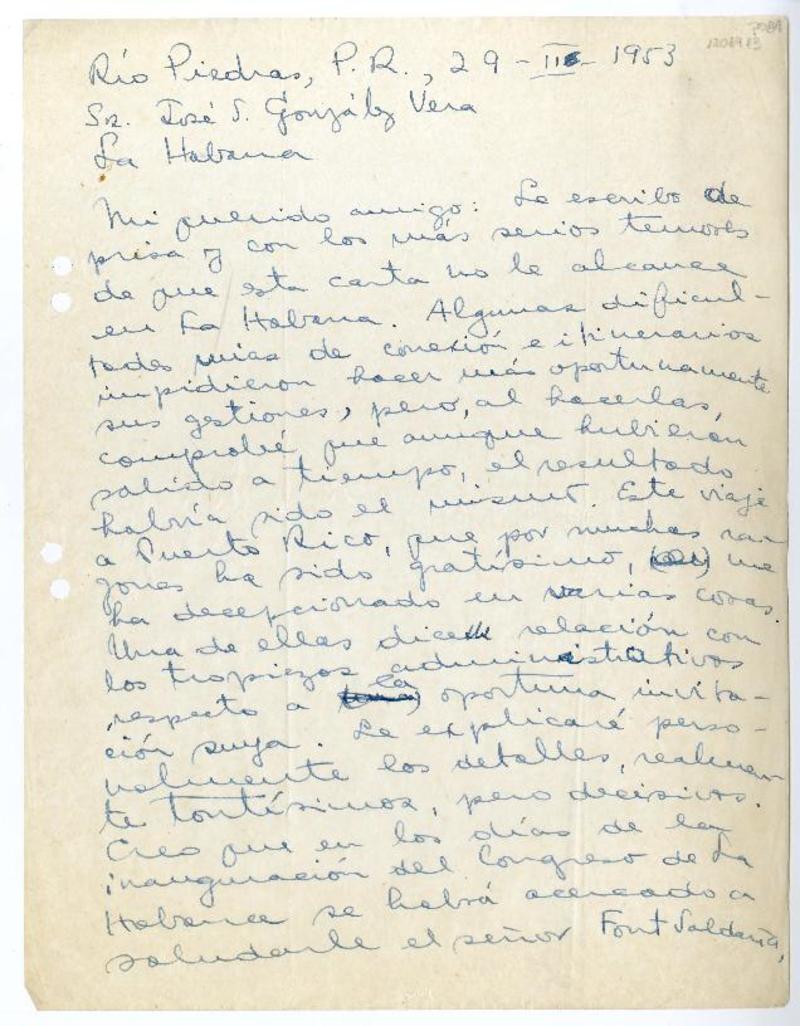 Río Piedras, P.R., 29-II-1953
Sr. José S. González Vera
La Habana
Mi querido amigo: Le escribo de
prisa y con los más serios temores
de que esta carta no le alcance
en La Habana. Algunas dificul-
tades mías de conexión e itinerarios
impidieron hacer más oportunamente
sus gestiones, pero, al hacerlas,
comprobé que aunque hubieran
salido a tiempo, el resultado
habría sido el mismo. Este viaje
a Puerto Rico, que por muchas ra-
zones ha sido gratísimo, me
ha decepcionado en varias cosas.
Una de ellas dice relación con
los tropiezos administrativos
respecto a la oportuna invita-
ción suya. Le explicaré perso-
nalmente los detalles, realmen-
te tontísimos, pero decisivos.
Creo que en los días de la
inauguración del Congreso de La
Habana se habrá acercado a
saludarle el señor Font Saldaña,